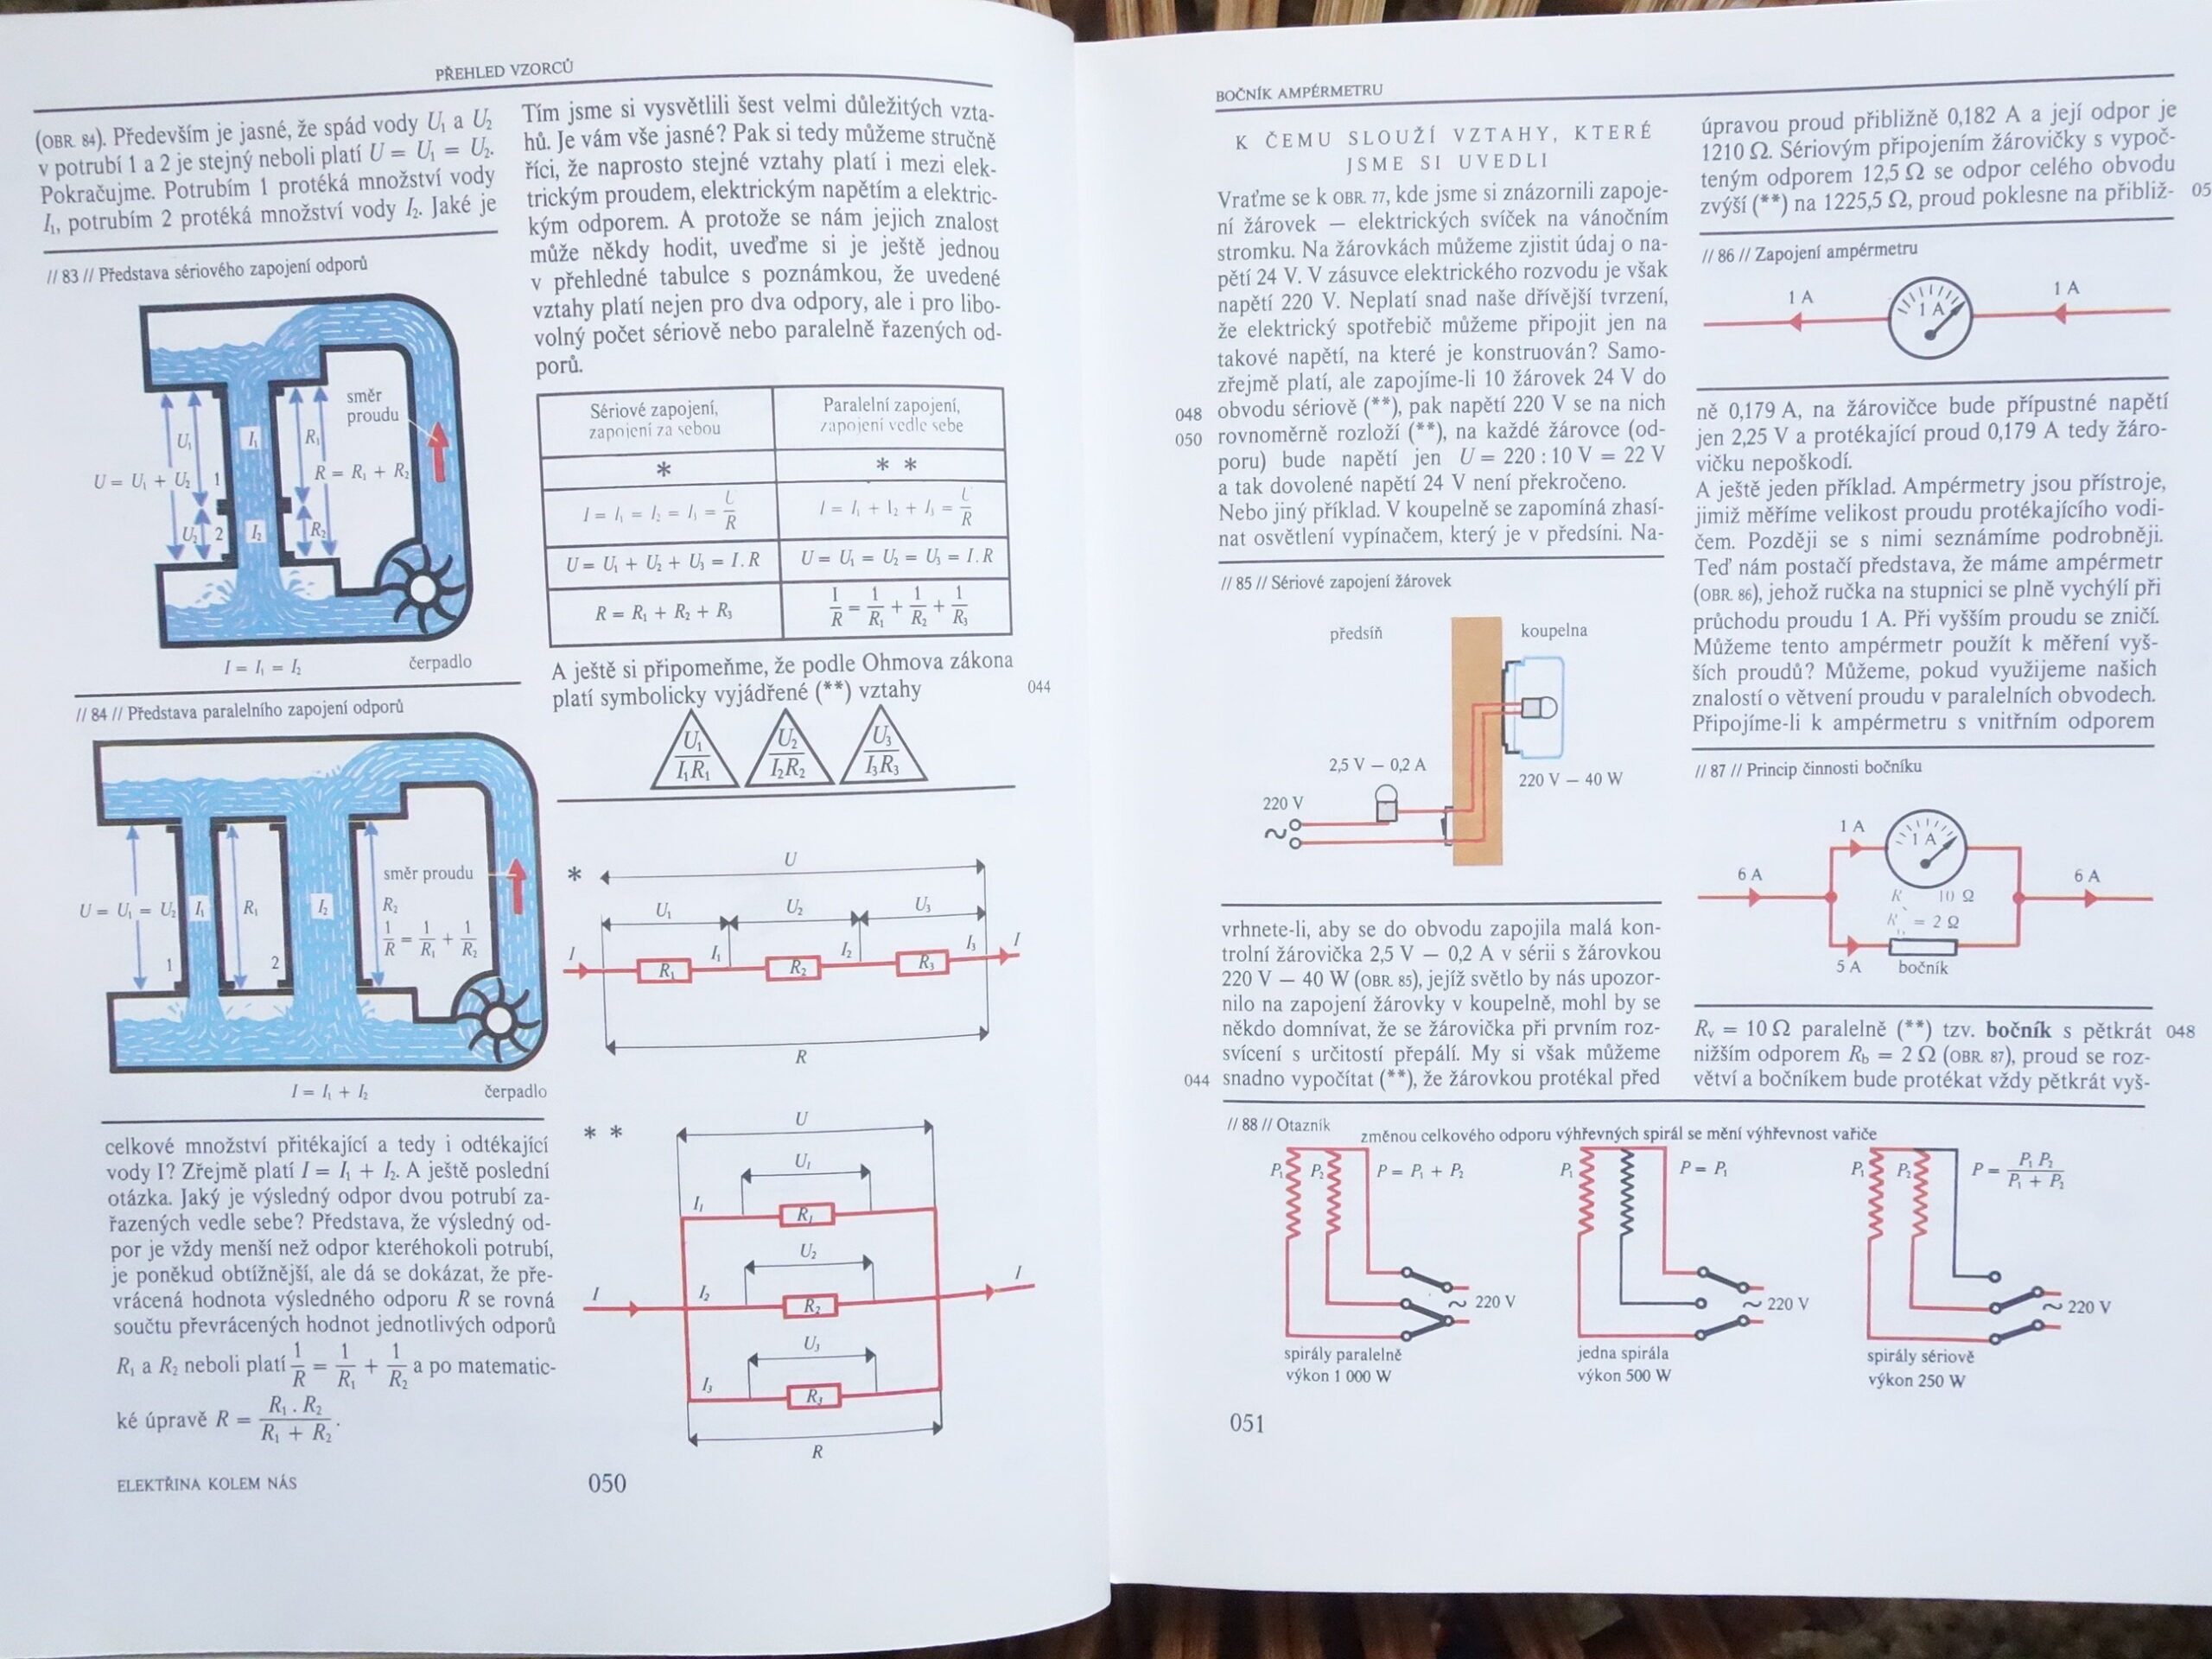 PŘEHLED VZORCŮ
(OBR. 84). Především je jasné, že spád vody U₁ a U₂
v potrubí 1 a 2 je stejný neboli platí U = U₁ = U₂.
Pokračujme. Potrubím 1 protéká množství vody
I₁, potrubím 2 protéká množství vody I₂. Jaké je
// 83 // Představa sériového zapojení odporů
směr
proudu
U₁
I₁
R₁
U = U₁ + U₂
1
R = R₁ + R₂
U₂
2
I₂
R₂
I = I₁ = I₂
čerpadlo
// 84 // Představa paralelního zapojení odporů
směr proudu
U = U₁ = U₂
I₁
R₁
I₂
R₂
1/R = 1/R₁ + 1/R₂
1
2
I = I₁ + I₂
čerpadlo
celkové množství přitékající a tedy i odtékající
vody I? Zřejmě platí I = I₁ + I₂. A ještě poslední
otázka. Jaký je výsledný odpor dvou potrubí za-
řazených vedle sebe? Představa, že výsledný od-
por je vždy menší než odpor kteréhokoli potrubí,
je poněkud obtížnější, ale dá se dokázat, že pře-
vrácená hodnota výsledného odporu R se rovná
součtu převrácených hodnot jednotlivých odporů
R₁ a R₂ neboli platí 1/R = 1/R₁ + 1/R₂ a po matematic-
ké úpravě R = R₁ . R₂ / R₁ + R₂.
ELEKTŘINA KOLEM NÁS
050
Tím jsme si vysvětlili šest velmi důležitých vzta-
hů. Je vám vše jasné? Pak si tedy můžeme stručně
říci, že naprosto stejné vztahy platí i mezi elek-
trickým proudem, elektrickým napětím a elektric-
kým odporem. A protože se nám jejich znalost
může někdy hodit, uveďme si je ještě jednou
v přehledné tabulce s poznámkou, že uvedené
vztahy platí nejen pro dva odpory, ale i pro libo-
volný počet sériově nebo paralelně řazených od-
porů.
Sériové zapojení,
zapojení za sebou
Paralelní zapojení,
zapojení vedle sebe
*
* *
I = I₁ = I₂ = I₃ = U/R
I = I₁ + I₂ + I₃ = U/R
U = U₁ + U₂ + U₃ = I.R
U = U₁ = U₂ = U₃ = I.R
R = R₁ + R₂ + R₃
1/R = 1/R₁ + 1/R₂ + 1/R₃
A ještě si připomeňme, že podle Ohmova zákona
platí symbolicky vyjádřené (**) vztahy 044
U₁
I₁R₁
U₂
I₂R₂
U₃
I₃R₃
*
U
U₁ U₂ U₃
I I₁ I₂ I₃ I
R₁ R₂ R₃
R
* *
U
U₁
I₁
R₁
U₂
I I₂ I
R₂
U₃
I₃
R₃
R
BOČNÍK AMPÉRMETRU
K ČEMU SLOUŽÍ VZTAHY, KTERÉ
JSME SI UVEDLI
Vraťme se k OBR. 77, kde jsme si znázornili zapoje-
ní žárovek — elektrických svíček na vánočním
stromku. Na žárovkách můžeme zjistit údaj o na-
pětí 24 V. V zásuvce elektrického rozvodu je však
napětí 220 V. Neplatí snad naše dřívější tvrzení,
že elektrický spotřebič můžeme připojit jen na
takové napětí, na které je konstruován? Samo-
zřejmě platí, ale zapojíme-li 10 žárovek 24 V do
048 obvodu sériově (**), pak napětí 220 V se na nich
050 rovnoměrně rozloží (**), na každé žárovce (od-
poru) bude napětí jen U = 220 : 10 V = 22 V
a tak dovolené napětí 24 V není překročeno.
Nebo jiný příklad. V koupelně se zapomíná zhasí-
nat osvětlení vypínačem, který je v předsíni. Na-
// 85 // Sériové zapojení žárovek
předsíň
koupelna
2,5 V — 0,2 A
220 V — 40 W
220 V
~
vrhnete-li, aby se do obvodu zapojila malá kon-
trolní žárovička 2,5 V — 0,2 A v sérii s žárovkou
220 V — 40 W (OBR. 85), jejíž světlo by nás upozor-
nilo na zapojení žárovky v koupelně, mohl by se
někdo domnívat, že se žárovička při prvním roz-
svícení s určitostí přepálí. My si však můžeme
044 snadno vypočítat (**), že žárovkou protékal před
úpravou proud přibližně 0,182 A a její odpor je
1210 Ω. Sériovým připojením žárovičky s vypoč-
teným odporem 12,5 Ω se odpor celého obvodu
zvýší (**) na 1225,5 Ω, proud poklesne na přibliž- 05
// 86 // Zapojení ampérmetru
1 A
1 A
1 A
ně 0,179 A, na žárovičce bude přípustné napětí
jen 2,25 V a protékající proud 0,179 A tedy žáro-
vičku nepoškodí.
A ještě jeden příklad. Ampérmetry jsou přístroje,
jimiž měříme velikost proudu protékajícího vodi-
čem. Později se s nimi seznámíme podrobněji.
Teď nám postačí představa, že máme ampérmetr
(OBR. 86), jehož ručka na stupnici se plně vychýlí při
průchodu proudu 1 A. Při vyšším proudu se zničí.
Můžeme tento ampérmetr použít k měření vyš-
ších proudů? Můžeme, pokud využijeme našich
znalostí o větvení proudu v paralelních obvodech.
Připojíme-li k ampérmetru s vnitřním odporem
// 87 // Princip činnosti bočníku
1 A
1 A
6 A
6 A
R 10 Ω
R = 2 Ω
5 A
bočník
Rᵥ = 10 Ω paralelně (**) tzv. bočník s pětkrát 048
nižším odporem R_b = 2 Ω (OBR. 87), proud se roz-
větví a bočníkem bude protékat vždy pětkrát vyš-
// 88 // Otazník
změnou celkového odporu výhřevných spirál se mění výhřevnost vařiče
P₁ P₂ P = P₁ + P₂
~ 220 V
spirály paralelně
výkon 1 000 W
P₁ P = P₁
~ 220 V
jedna spirála
výkon 500 W
P₁ P₂ P = P₁ P₂ / P₁ + P₂
~ 220 V
spirály sériově
výkon 250 W
051